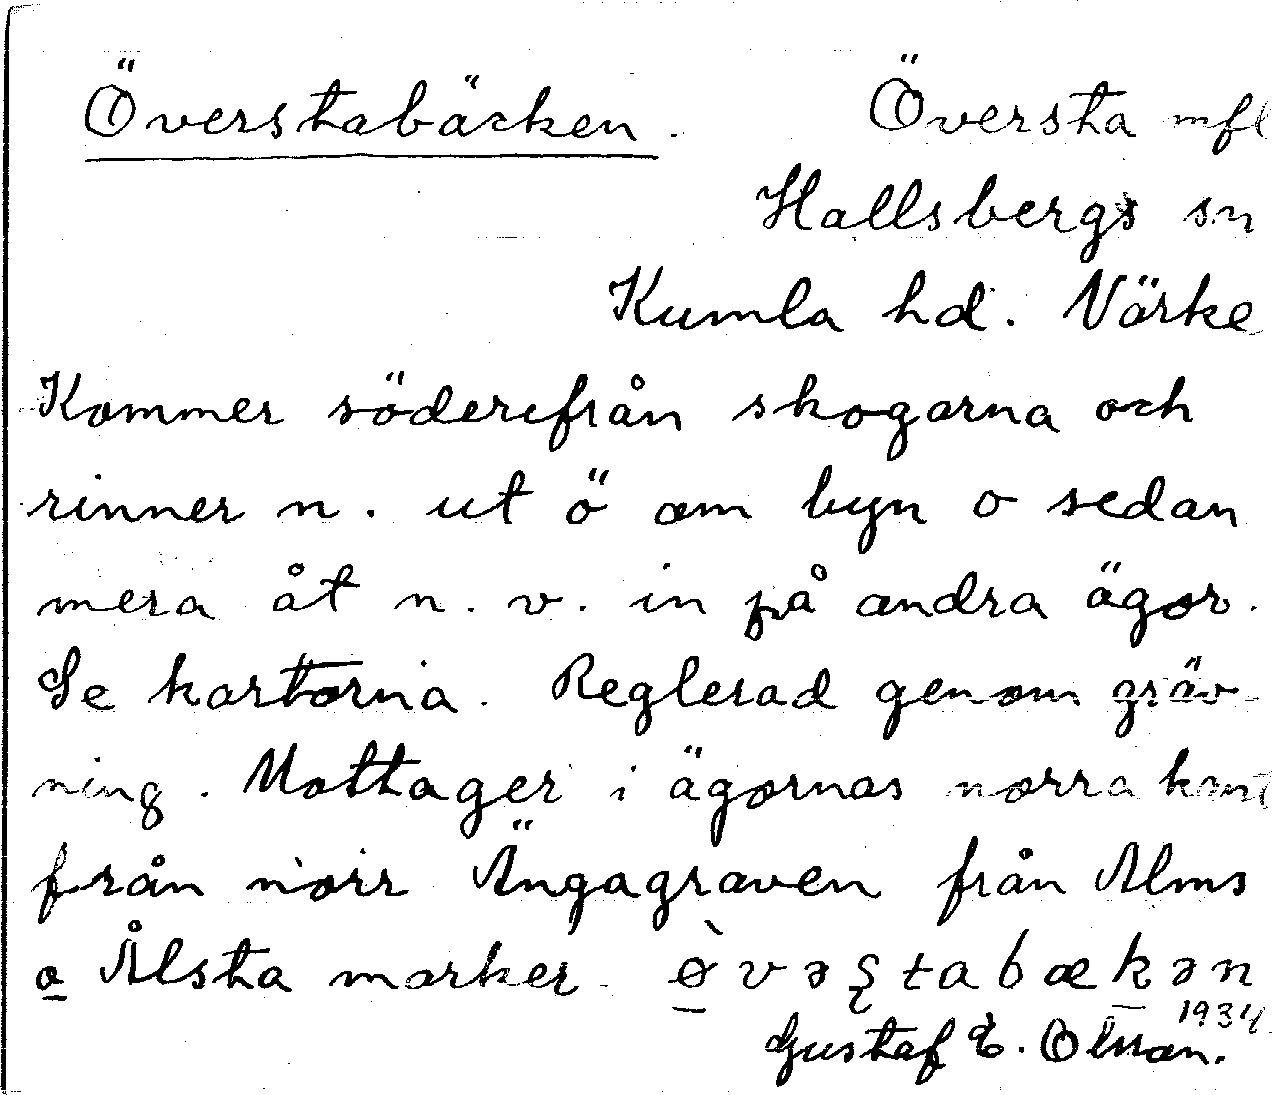 Överstabäcken. Översta mfl
Hallsbergs sn
Kumla hd. Närke
Kommer söderefrån skogarna och
rinner n. ut ö om byn o sedan
mera åt n. v. in på andra ägor.
Se kartorna. Reglerad genom gräv-
ning. Mottager i ägornas norra kant
från norr Ängagraven från Alms
o Ålsta marker.
1934
Gustaf E. Olsson.